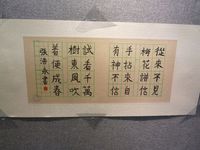 從來不見
梅花譜信
手拈來自
有神不信
試看千萬
樹東風吹
著便成春
張浩永書